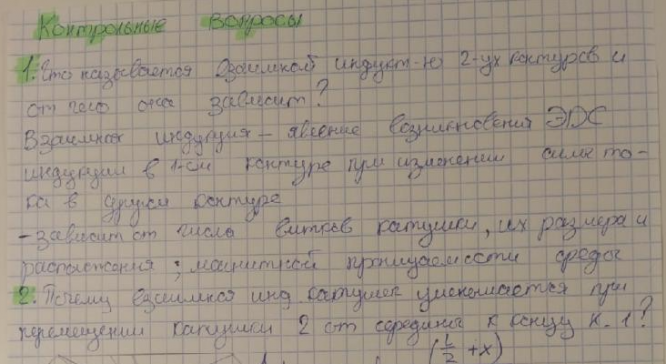 Контрольные вопросы
1. Что называется взаимной индукт-ю 2-ух контуров и
от чего она зависит?
Взаимная индукция - явление возникновения ЭДС
индукции в 1-ом контуре при изменении силы то-
ка в другом контуре
- зависит от числа витков катушки, их размера и
расположения; магнитной проницаемости среды
2. Почему взаимная инд. катушек уменьшается при
перемещении катушки 2 от середины к концу к. 1?
(L/2 + x)